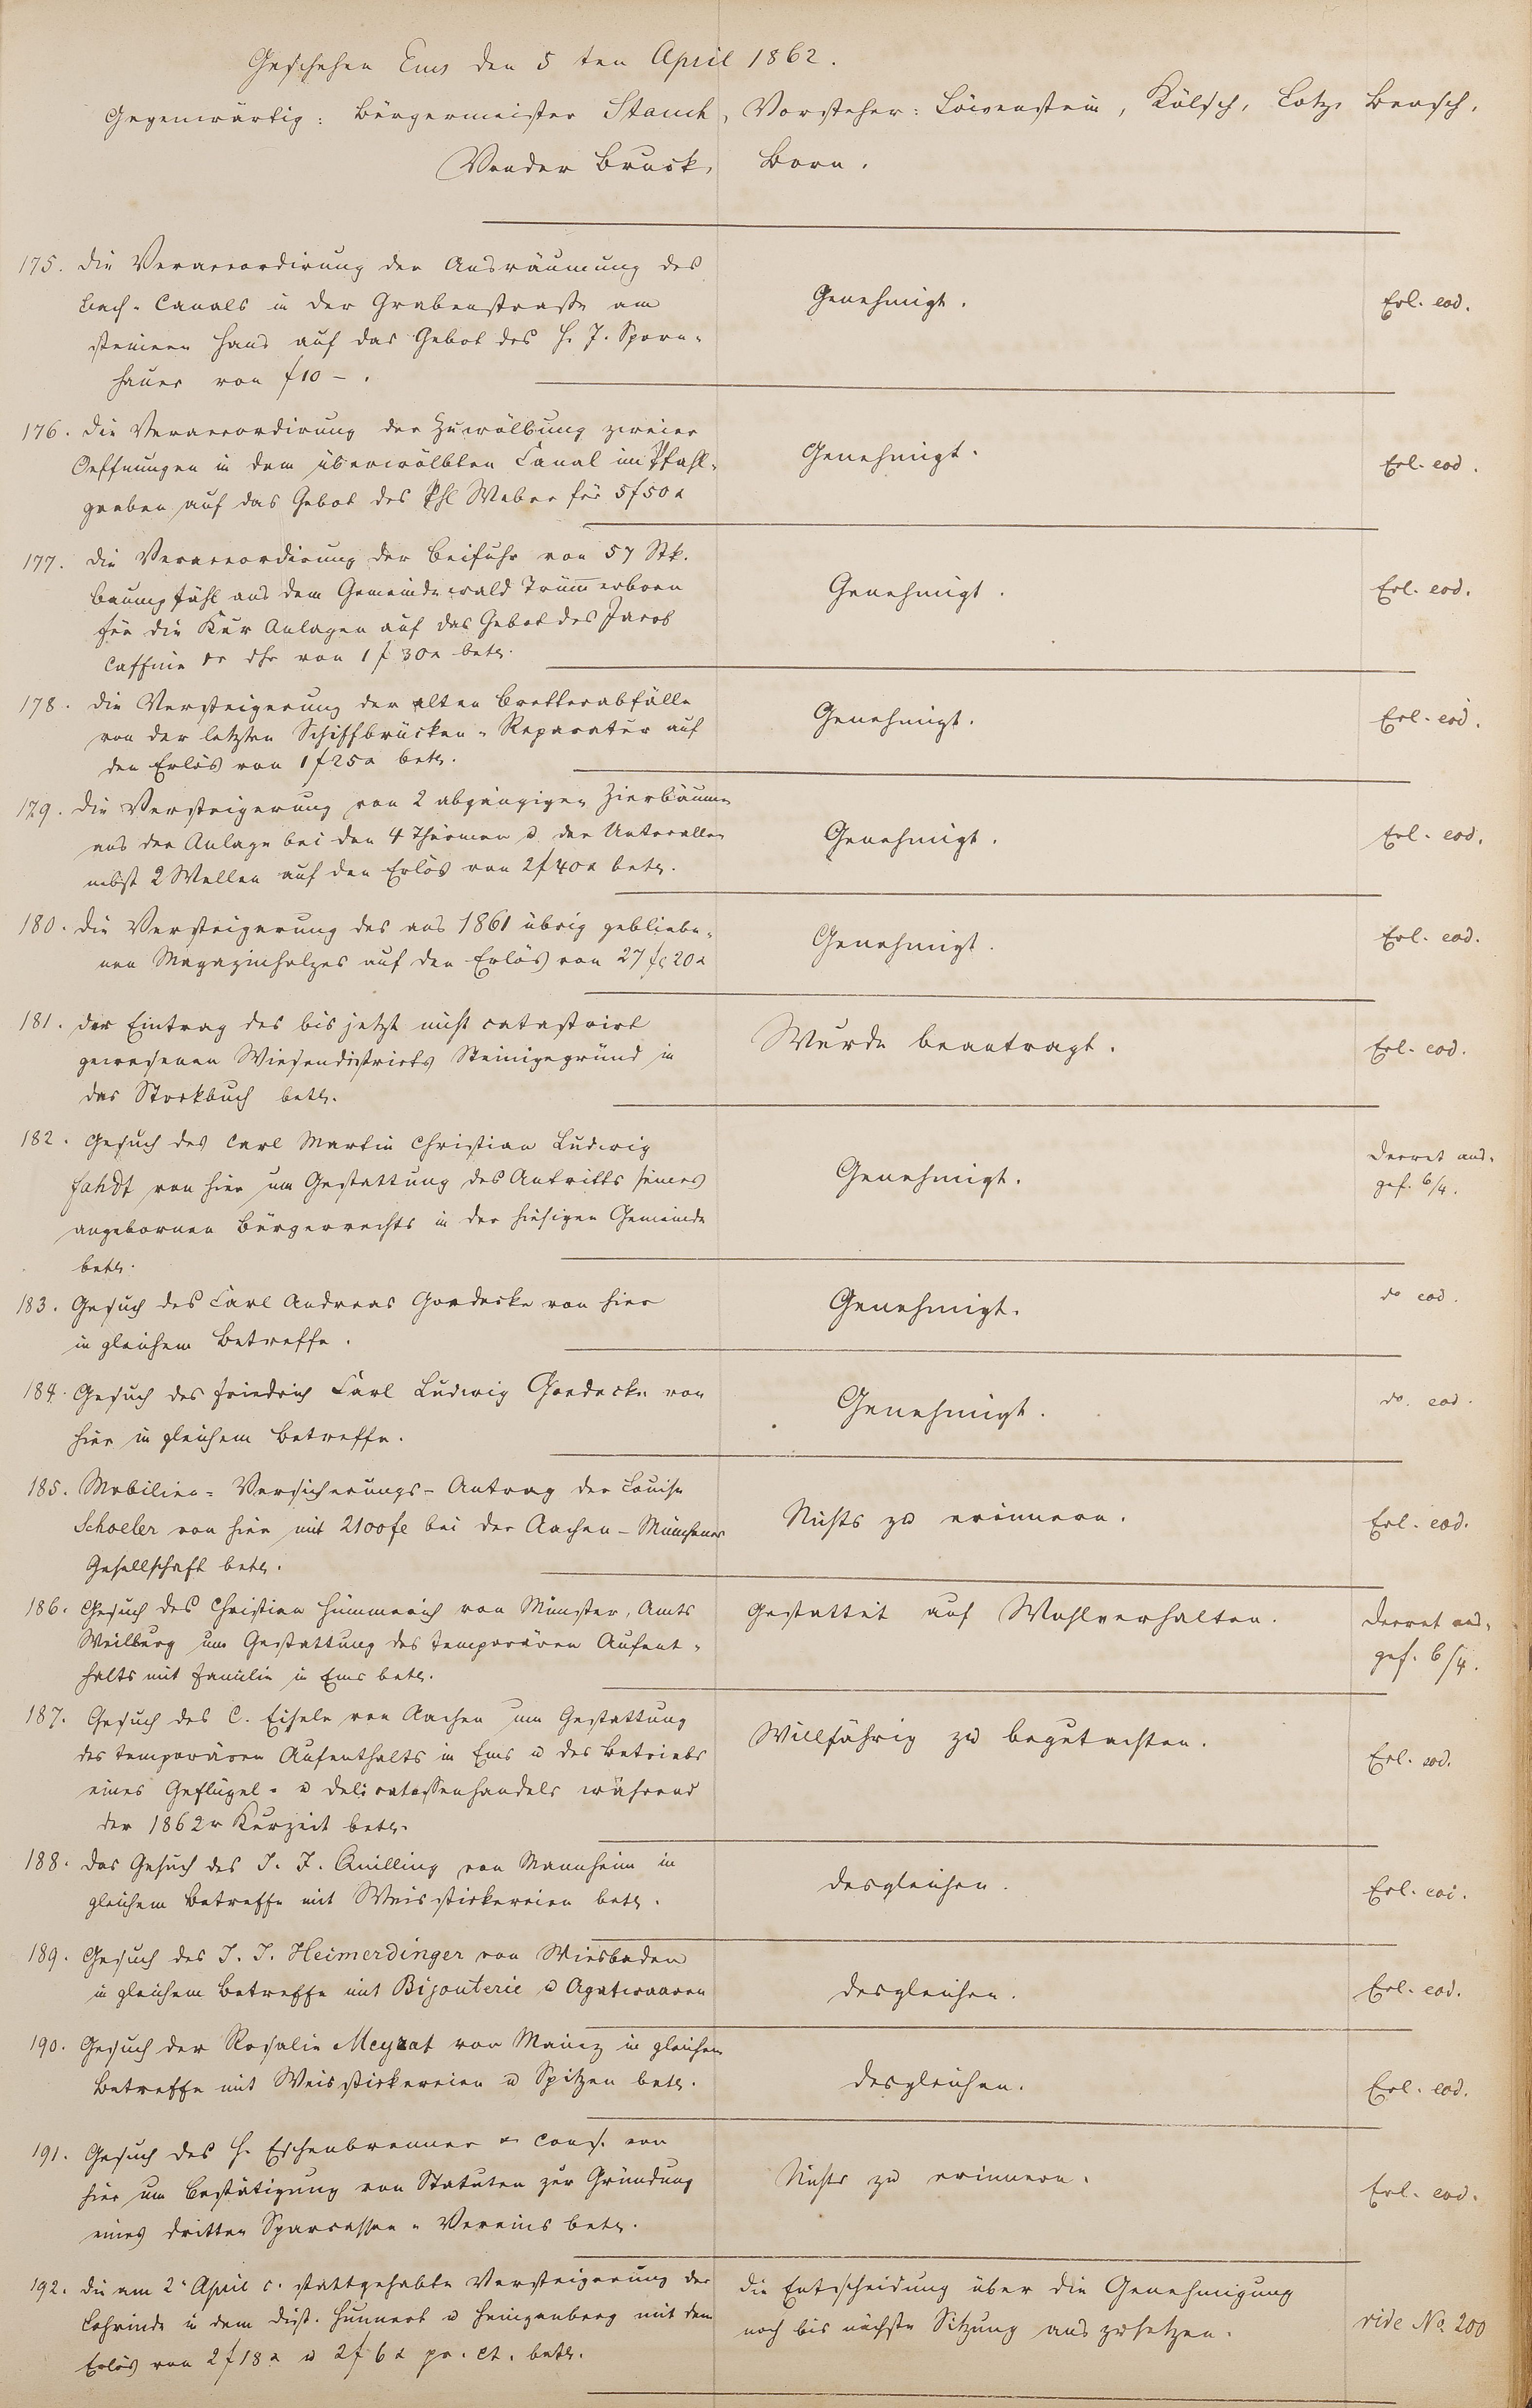 Geschehen Ems den 5 ten April 1862.
Gegenwärtig: Bürgermeister Stauch, Vorsteher: Löwenstein, Kölsch, Lotz, Bensch,
Vonder Bruck, Born.
175. Die Veraccordirung der Ausräumung des
Bach-Canals in der Grabenstraße am
steinern Haus auf das Gebot des H. J. Sporn-
hauer von f 10 –.
Genehmigt.
Erl. eod.
176. Die Veraccordirung der Zuwölbung zweier
Oeffnungen in dem überwölbten Canal im Pfahl-
graben auf das Gebot des Phl Weber für 5 f 50 x
Genehmigt.
Erl. eod.
177. Die Veraccordirung der Beifuhr von 57 Stk.
Baumpfähl aus dem Gemeindewald Trümerborn
für die Kur Anlagen auf das Gebot des Jacob
von 1 f 30 x betr.
Genehmigt.
Erl. eod.
178. Die Versteigerung der alten Bretterabfälle
von der letzten Schiffbrücken-Reparatur auf
den Erlös von 1 f 25 x betr.
Genehmigt.
Erl. eod.
179. Die Versteigerung von 2 abgängigen Zierbäumen
aus der Anlage bei den 4 Thürmen u der Unterallee
nebst 2 Wellen auf den Erlös von 2 f 40 x betr.
Genehmigt.
Erl. eod.
180. Die Versteigerung des aus 1861 übrig gebliebe-
nen Magazinholzes auf den Erlös von 27 fl 20 x
Genehmigt.
Erl. eod.
181. Der Eintrag des bis jetzt nicht catastrirt
gewesenen Wiesendistricts Steinigegründ in
das Stockbuch betr.
Wurde beantragt.
Erl. eod.
182. Gesuch des Carl Martin Christian Ludwig
Fahdt von hier um Gestattung des Antritts seines
angebornen Bürgerrechts in der hiesigen Gemeinde
betr.
Genehmigt.
Decret aus-
gef. 6/4.
183. Gesuch des Carl Andreas Goedecke von hier
in gleichem Betreffe.
Genehmigt.
do eod.
184. Gesuch des Friedrich Carl Ludwig Goedecke von
hier in gleichem Betreffe.
Genehmigt.
do. eod.
185. Mobilien-Versicherungs-Antrag der Louise
Schoeler von hier mit 2100 fl bei der Aachen-Münchener
Gesellschaft betr.
Nichts zu erinnern.
Erl. eod.
186. Gesuch des Christian Hümmerich von Münster, Amts
Weilburg um Gestattung des temporären Aufent-
halts mit Familie in Ems betr.
Gestattet auf Wohlverhalten.
Decret aus-
gef. 6/4.
187. Gesuch des C. Eisele von Aachen um Gestattung
des temporären Aufenthalts in Ems u des Betriebs
eines Geflügel- u Delicatessenhandels während
der 1862r Kurzeit betr.
Willfährig zu begutachten.
Erl. eod.
188. Das Gesuch des J. F. Quilling von Mannheim in
gleichem Betreffe mit Weisstickereien betr.
Desgleichen.
Erl. eod.
189. Gesuch des J. J. Heimerdinger von Wiesbaden
in gleichem Betreffe mit Bijouterie u Agatwaaren
Desgleichen.
Erl. eod.
190. Gesuch der Rosalie Meyzat von Mainz in gleichem
Betreffe mit Weisstickereien u Spitzen betr.
Desgleichen.
Erl. eod.
191. Gesuch des H. Eschenbrenner & Cons. von
hier um Bestätigung von Statuten zur Gründung
eines dritten Sparcassen-Vereins betr.
Nichts zu erinnern.
Erl. eod.
192. Die am 2. April c. stattgehabte Versteigerung der
Lohrinde in dem Dist. Hunnert u Heinzenberg mit dem
Erlös von 2 f 18 x u 2 f 6 x pr. Ct. betr.
Die Entscheidung über die Genehmigung
noch bis nächste Sitzung auszusetzen.
vide No. 200